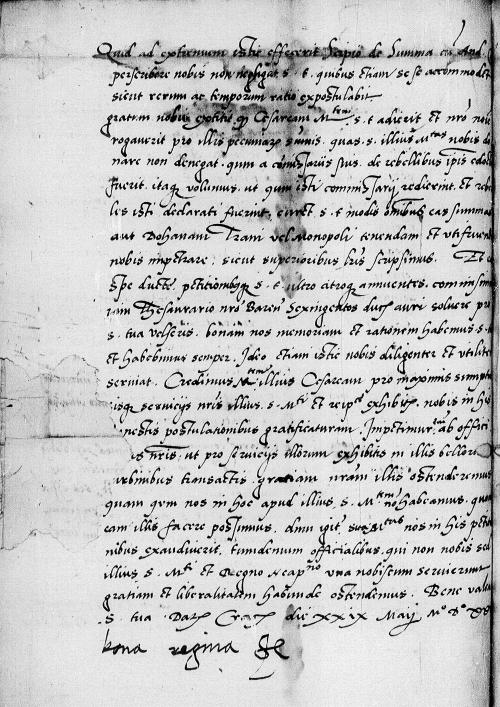 Quid ad extremum istic effecerit Scipio de Summa cu And
perscribere nobis non negligat s. t. quibus etiam se se accommodet
sicut rerum ac temporum ratio expostulabit
gratum nobis extitit q Cesaream M.tem s. t. adierit et nro noie
rogauerit pro illis pecuniarz sumis, quas. s. illius M.tas nobis do
nare non denegat. qum a comissariis suis. de rebellibus ipis
fuerit. itaq volumus. ut qum isti commissarij redierint et rebe
les isti declarati fuerint, curet s. t. modis omibus eas summas
aut Dohanam Trani vel Monopoli tenendam et
nobis impetrare, sicut superioribus lris scripsimus. Et
spe ducti petitionibusq s. t. ultro citroq annuentes. commisim
iam Thesaurario nro Baren Sexingentos duc. auri soluere
s. tua velseris. bonam nos memoriam et rationem habemus s.
et habebimus semper. Ideo etiam istic nobis diligenter et utilite
seruiat. Credimus M.tem illius Cesaream pro maximis sumptib
usq seruicijs nris illius. s. M.ti et reip.ce exhibitis. nobis in his
nestis postulationibus gratificaturam. Impetimur ab offici
is nris. ut pro seruicijs illorum exhibitis in illis bellorum
turbinibus transactis. gratiam nram illis ostenderemus
quam qum nos in hoc apud illius. s. M.tem no habeamus. quo
eam illis facere possimus. dum igit sua M.tas nos in his petitio
nibus exaudiuerit, tumdenum officialibus. qui non nobis sed
illius s. M.ti et Regno Neap.no una nobiscum seruierunt
gratiam et liberalitatem habunde ostendemus. Bene valeat
S. tua. Datz Crac. die xxix Maij M.o D.o
bona regina